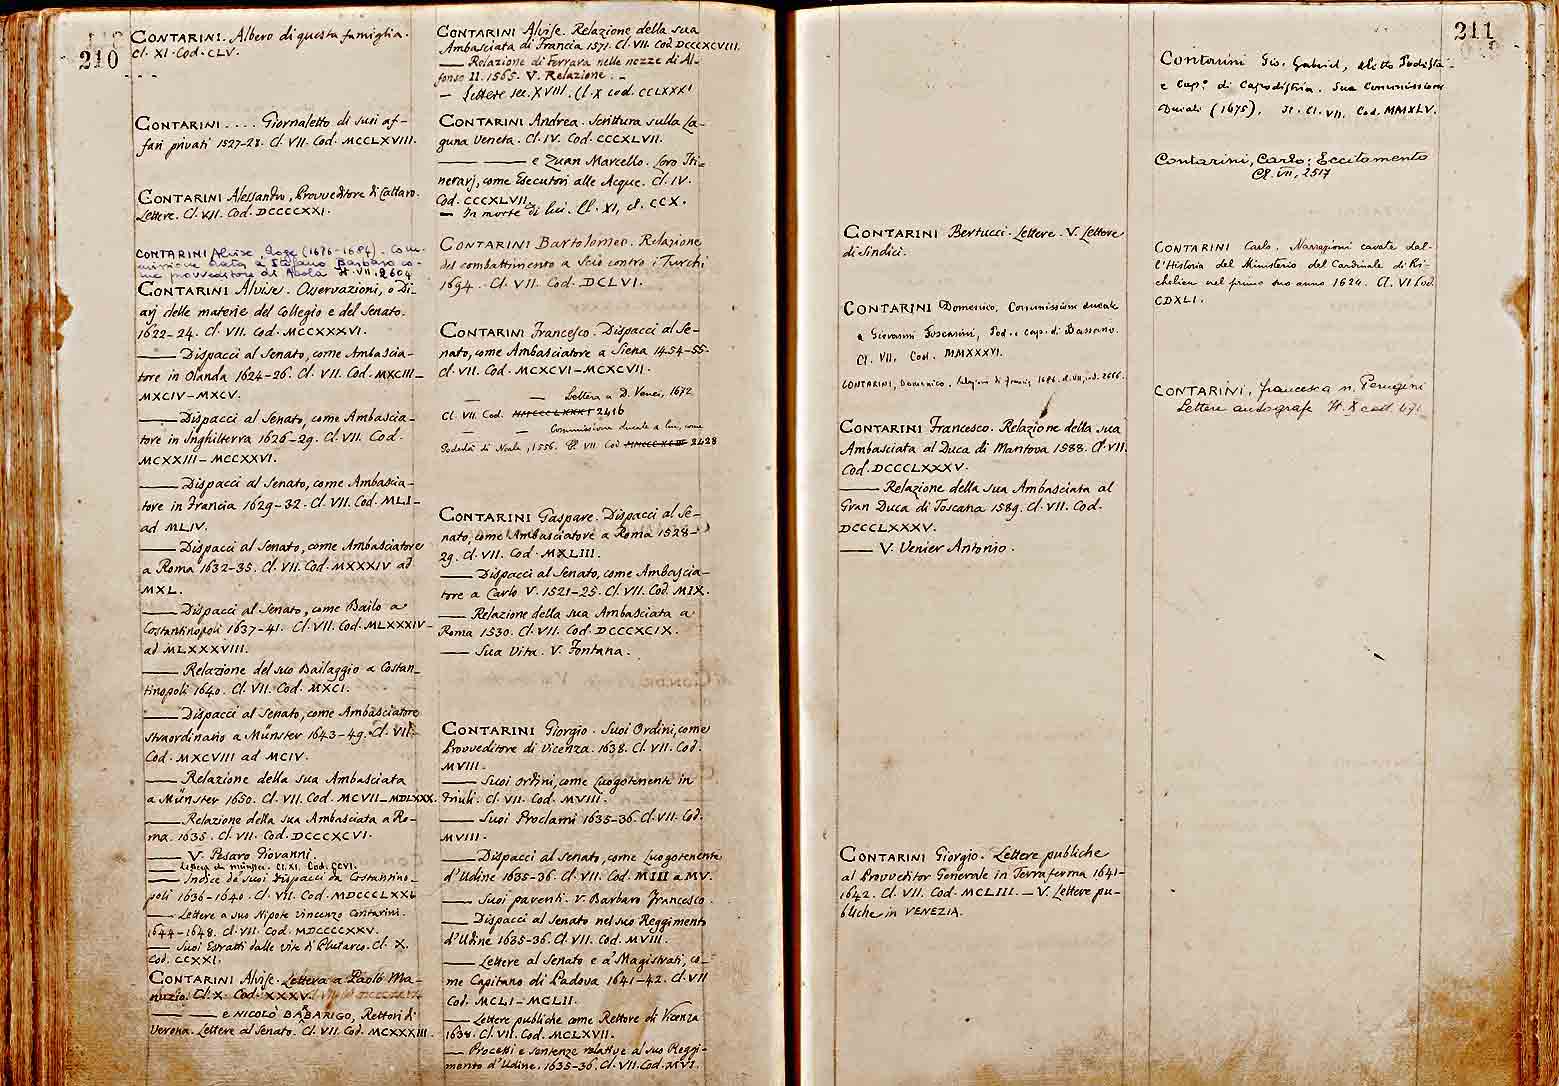 210
CONTARINI. Albero di questa famiglia.
Cl. XI. Cod. CLV.
CONTARINI .... Giornaletto di suoi af-
fari privati 1527-28. Cl. VII. Cod. MCCLXVIII.
CONTARINI Alessandro, Provveditore di Cattaro.
Lettere. Cl. VII. Cod. DCCCCXXI.
CONTARINI Alvise, Doge (1676-1684). Com-
missione data a Stefano Barbaro co-
me provveditore di Asola It. VII, 2604
CONTARINI Alvise. Osservazioni, o Di-
arj delle materie del Collegio e del Senato.
1622-24. Cl. VII. Cod. MCCXXXVI.
—— Dispacci al Senato, come Ambascia-
tore in Olanda 1624-26. Cl. VII. Cod. MXCIII-
MXCIV-MXCV.
—— Dispacci al Senato, come Ambascia-
tore in Inghilterra 1626-29. Cl. VII. Cod.
MCXXIII-MCCXXVI.
—— Dispacci al Senato, come Ambascia-
tore in Francia 1629-32. Cl. VII. Cod. MLI-
ad MLIV.
—— Dispacci al Senato, come Ambasciatore
a Roma 1632-35. Cl. VII. Cod. MXXXIV ad
MXL.
—— Dispacci al Senato, come Bailo a
Costantinopoli 1637-41. Cl. VII. Cod. MLXXXIV-
ad MLXXXVIII.
—— Relazione del suo Bailaggio a Costan-
tinopoli 1640. Cl. VII. Cod. MXCI.
—— Dispacci al Senato, come Ambasciatore
straordinario a Münster 1643-49. Cl. VII.
Cod. MXCVIII ad MCIV.
—— Relazione della sua Ambasciata
a Münster 1650. Cl. VII. Cod. MCVII-MDLXXX.
—— Relazione della sua Ambasciata a Ro-
ma. 1635. Cl. VII. Cod. DCCCXCVI.
—— V. Pesaro Giovanni.
—— Lettere di Münster. Cl. XI. Cod. CCVI.
—— Indice de' suoi Dispacci da Costantino-
poli 1636-1640. Cl. VII. Cod. MDCCCLXXI
—— Lettere a suo Nipote Vincenzo Contarini.
1644-1648. Cl. VII. Cod. MDCCCCXXV.
—— Suoi Estratti dalle vite di Plutarco. Cl. X.
Cod. CCXXI.
CONTARINI Alvise. Lettera a Paolo Ma-
nuzio. Cl. X. Cod. XXXV.
—— —— e NICOLÒ BARBARIGO, Rettori di
Verona. Lettere al Senato. Cl. VII. Cod. MCXXXIII.
CONTARINI Alvise. Relazione della sua
Ambasciata di Francia 1571. Cl. VII. Cod. DCCCXCVIII.
—— Relazione di Ferrara nelle nozze di Al-
fonso II. 1565. V. Relazione.
— Lettere sec. XVIII. Cl. X cod. CCLXXXI
CONTARINI Andrea. Scrittura sulla La-
guna Veneta. Cl. IV. Cod. CCCXLVII.
—— —— e Zuan Marcello. Loro Iti-
nerarj, come Esecutori alle Acque. Cl. IV.
Cod. CCCXLVII.
— In morte di lui. Cl. XI, cl. CCX.
CONTARINI Bartolomeo. Relazione
del combattimento a Scio contro i Turchi
1694. Cl. VII. Cod. DCLVI.
CONTARINI Francesco. Dispacci al Se-
nato, come Ambasciatore a Siena 1454-55.
Cl. VII. Cod. MCXCVI-MCXCVII.
— — Lettera a D. Venier, 1672
Cl. VII. Cod. 2416
— — Commissione ducale a lui, come
Podestà di Noale, 1556. Cl. VII Cod 2428
CONTARINI Gaspare. Dispacci al Se-
nato, come Ambasciatore a Roma 1528-
29. Cl. VII. Cod. MXLIII.
—— Dispacci al Senato, come Ambascia-
tore a Carlo V. 1521-25. Cl. VII. Cod. MIX.
—— Relazione della sua Ambasciata a
Roma 1530. Cl. VII. Cod. DCCCXCIX.
—— Sua Vita. V. Fontana.
CONTARINI Giorgio. Suoi Ordini, come
Provveditore di Vicenza. 1638. Cl. VII. Cod.
MVIII.
—— Suoi Ordini, come Luogotenente in
Friuli. Cl. VII. Cod. MVIII.
—— Suoi Proclami 1635-36. Cl. VII. Cod.
MVIII.
—— Dispacci al Senato, come Luogotenente
d'Udine 1635-36. Cl. VII. Cod. MIII a MV.
—— Suoi parenti. V. Barbaro Francesco.
—— Dispacci al Senato nel suo Reggimento
d'Udine 1635-36. Cl. VII. Cod. MVIII.
—— Lettere al Senato e a' Magistrati, co-
me Capitano di Padova 1641-42. Cl. VII
Cod. MCLI-MCLII.
—— Lettere publiche come Rettore di Vicenza
1638. Cl. VII. Cod. MCLXVII.
—— Processi e sentenze relative al suo Reggi-
mento d'Udine. 1635-36. Cl. VII. Cod. MVI.
CONTARINI Bertucci. Lettere. V. Lettere
di Sindici.
CONTARINI Domenico. Commissione ducale
a Giovanni Foscarini, Pod. e cap. di Bassano.
Cl. VII. Cod. MMXXXVI.
CONTARINI, Domenico, Relazione di Francia, 1686. cl. VII, cod. 2666.
CONTARINI Francesco. Relazione della sua
Ambasciata al Duca di Mantova 1588. Cl. VII.
Cod. DCCCLXXXV.
—— Relazione della sua Ambasciata al
Gran Duca di Toscana 1589. Cl. VII. Cod.
DCCCLXXXV.
—— V. Venier Antonio.
CONTARINI Giorgio. Lettere publiche
al Provveditor Generale in Terraferma 1641-
1642. Cl. VII. Cod. MCLIII. — V. Lettere pu-
bliche in VENEZIA.
211
Contarini Gio. Gabriel, eletto Podestà
e Cap.º di Capodistria. Sua Commissione
Ducale (1675). It. Cl. VII. Cod. MMXLV.
Contarini, Carlo: Eccitamento
Cl. VII, 2517
CONTARINI Carlo. Narrazioni cavate dal-
l'Historia del Ministerio del Cardinale di Ri-
chelieu nel primo suo anno 1624. Cl. VI Cod.
CDXLI.
CONTARINI, Francesca n. Perugini
Lettere autografe It. X cod. 471